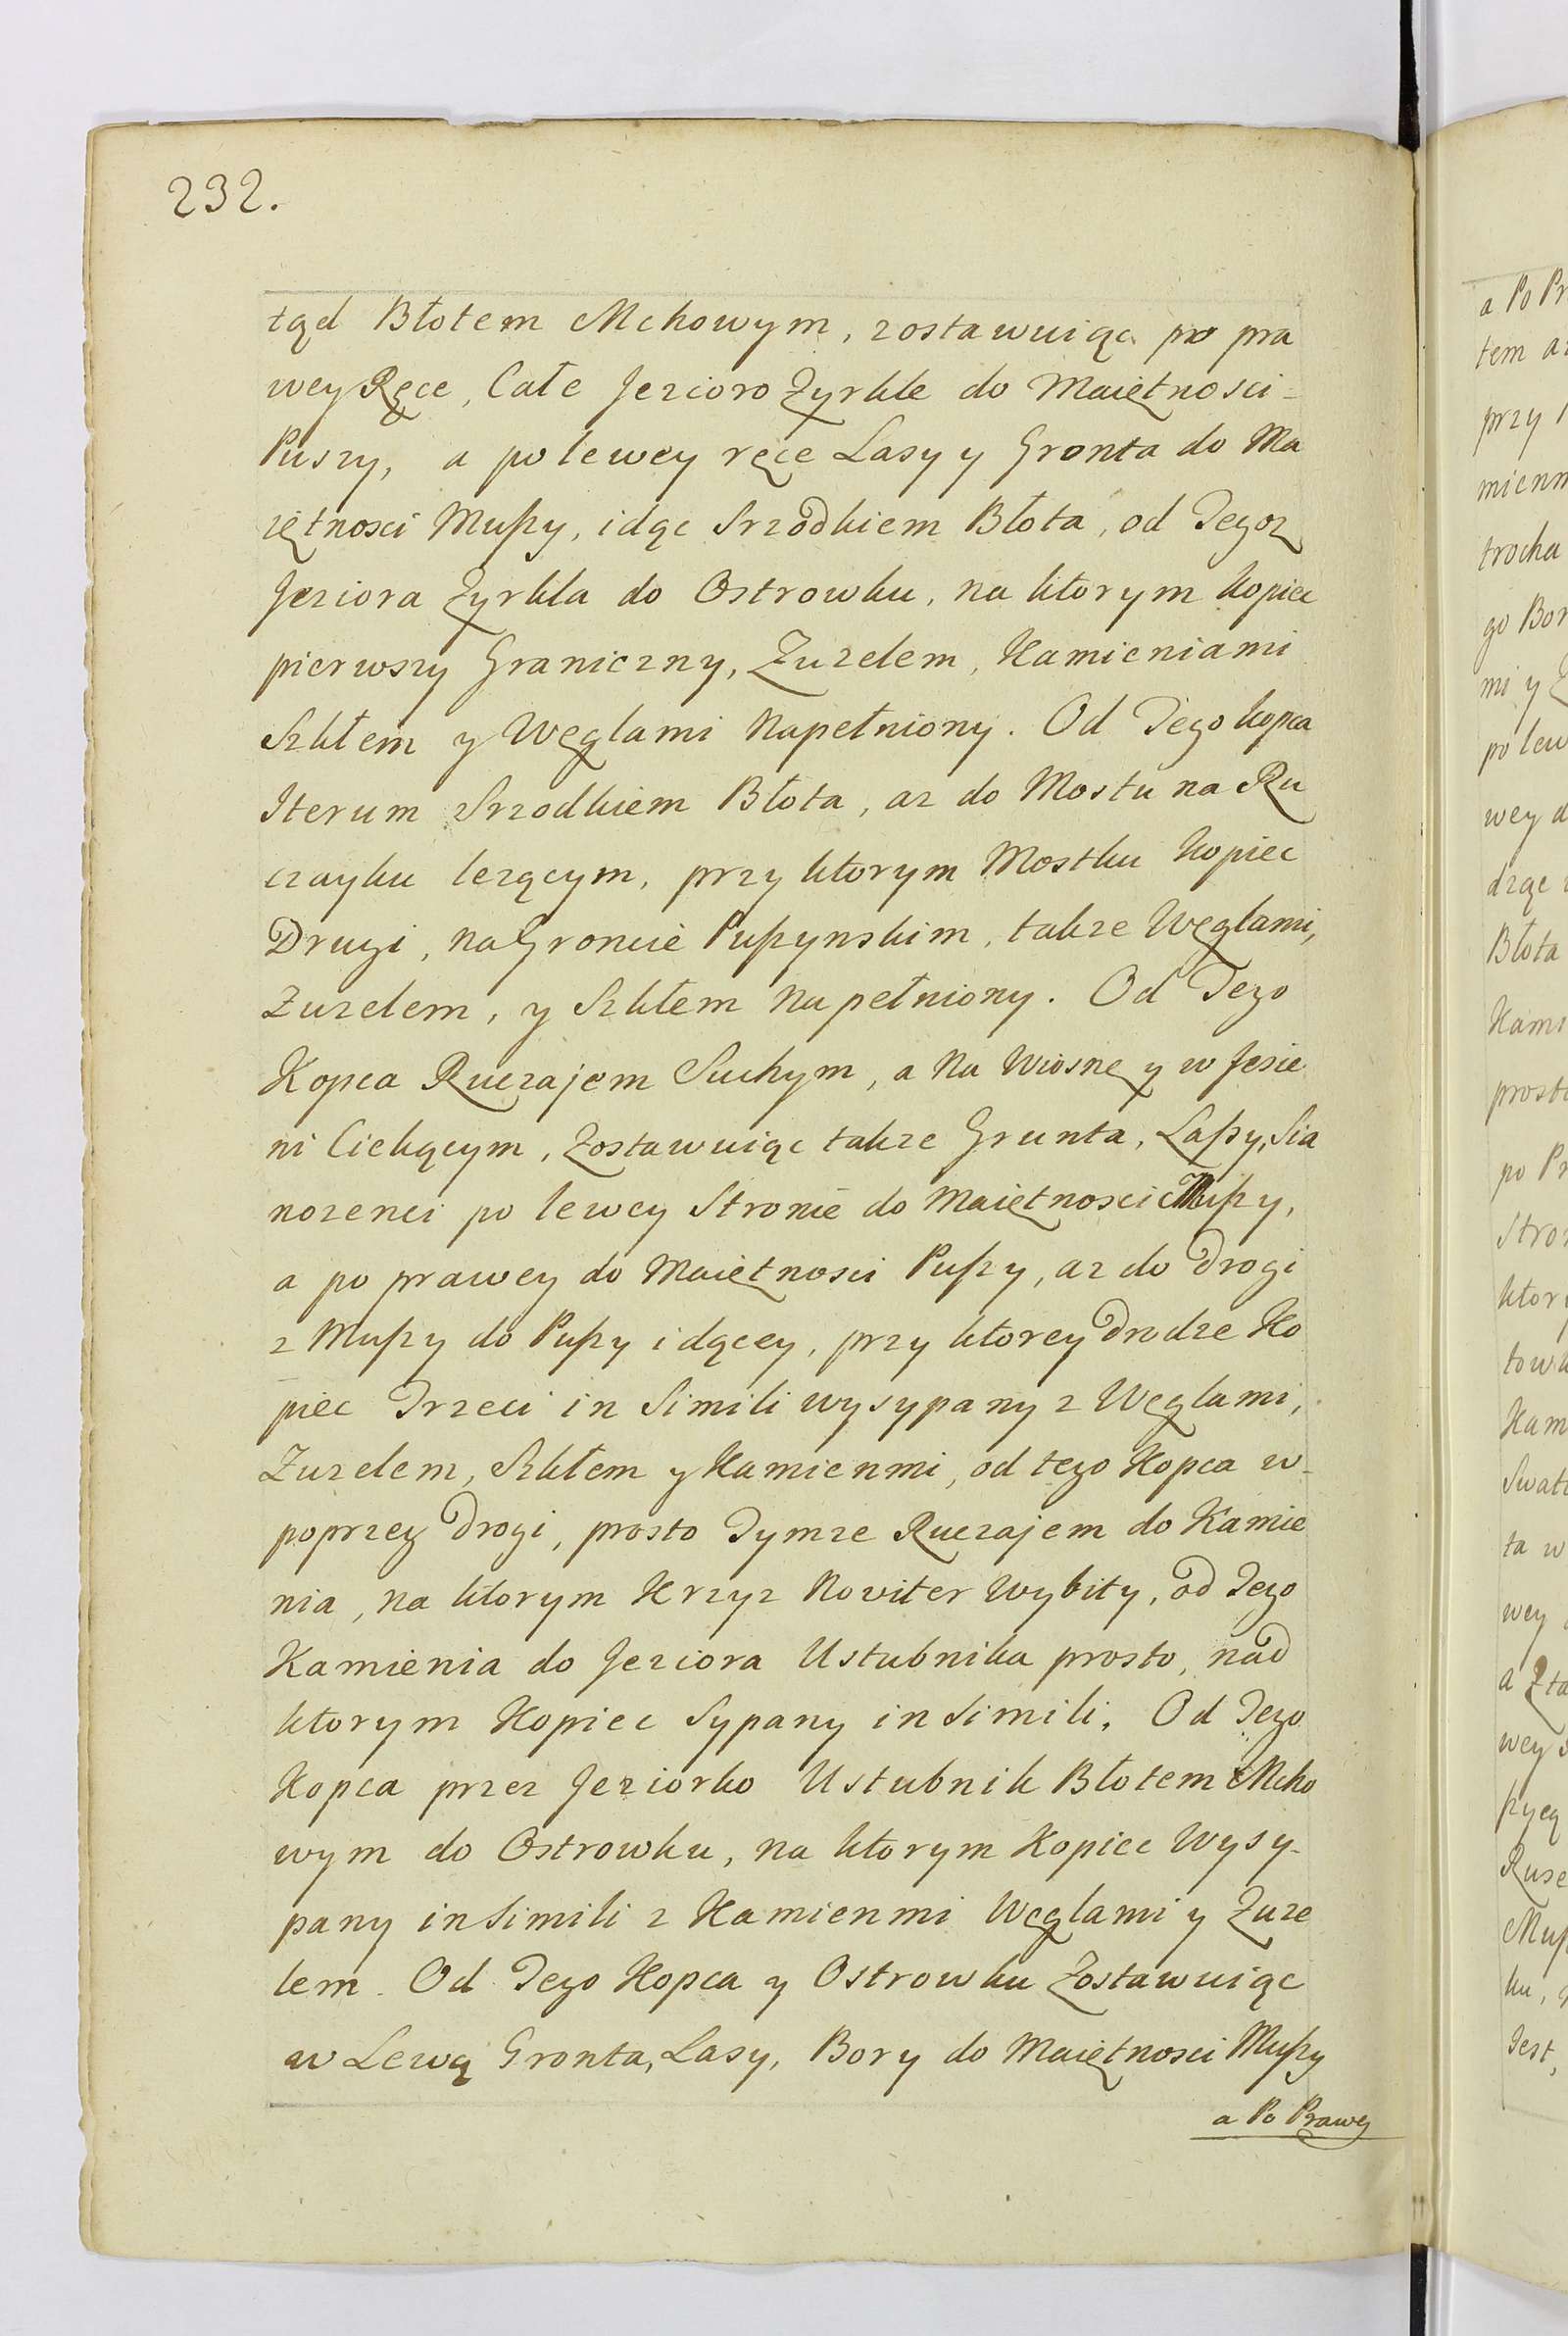 232.
tąd Błotem Mchowym, zostawuiąc po pra
wey Ręce, Całe Jezioro Zyrkle do Maiętnosci -
Puszy, a po lewey ręce Lasy y Gronta do Ma
iętnosci Mußy, idąc Srzodkiem Błota, od Tegoz
Jeziora Zyrkla do Ostrowku, na ktorym kopiec
pierwszy Graniczny, Zuzelem, Kamieniami
Szkłem y Węglami Napełniony. Od Tego kopca
Iterum Srzodkiem Błota, az do Mostu na Ru
czayku lezącym, przy ktorym Mostku kopiec
Drugi, na Groncie Pußynskim, takze Węglami,
Zuzelem, y Szkłem Napełniony. Od Tego
Kopca Ruczajem Suchym, a Na Wiosnę y w Jesie
ni Ciekącym, Zostawuiąc takze Grunta, Laßy, Sia
nozenci po lewey Stronie do Maiętnosci Mußy,
a po prawey do Maiętnosci Pußy, az do Drogi
z Mußy do Pußy idącey, przy ktorey Drodze Ko
piec Trzeci in Simili wysypany z Węglami,
Zuzelem, Szkłem y Kamienmi, od tego Kopca w-
poprzez Drogi, prosto Tymze Ruczajem do Kamie
nia, na ktorym Krzyz Noviter Wybity, od Tego
Kamienia do Jeziora Ustubnika prosto, nad
ktorym Kopiec Sypany in Simili. Od Tego
Kopca przez Jeziorko Ustubnik Błotem Mcho
wym do Ostrowku, na ktorym Kopiec Wysy-
pany in Simili z Kamienmi Węglami y Zuze
lem. Od Tego Kopca y Ostrowku Zostawuiąc
w Lewą Gronta, Lasy, Bory do Maiętnosci Mußy
a Po Prawey
a Po Pr
tem a
przy
mienm
trocha
go Bor
mi y
po lew
wey d
drąc
Błota
Kami
prosto
po Pr
Stron
ktory
towk
Kam
Swat
ta w
wey
a Zta
wey
ßycą
Ruse
Muß
ku,
Jest,